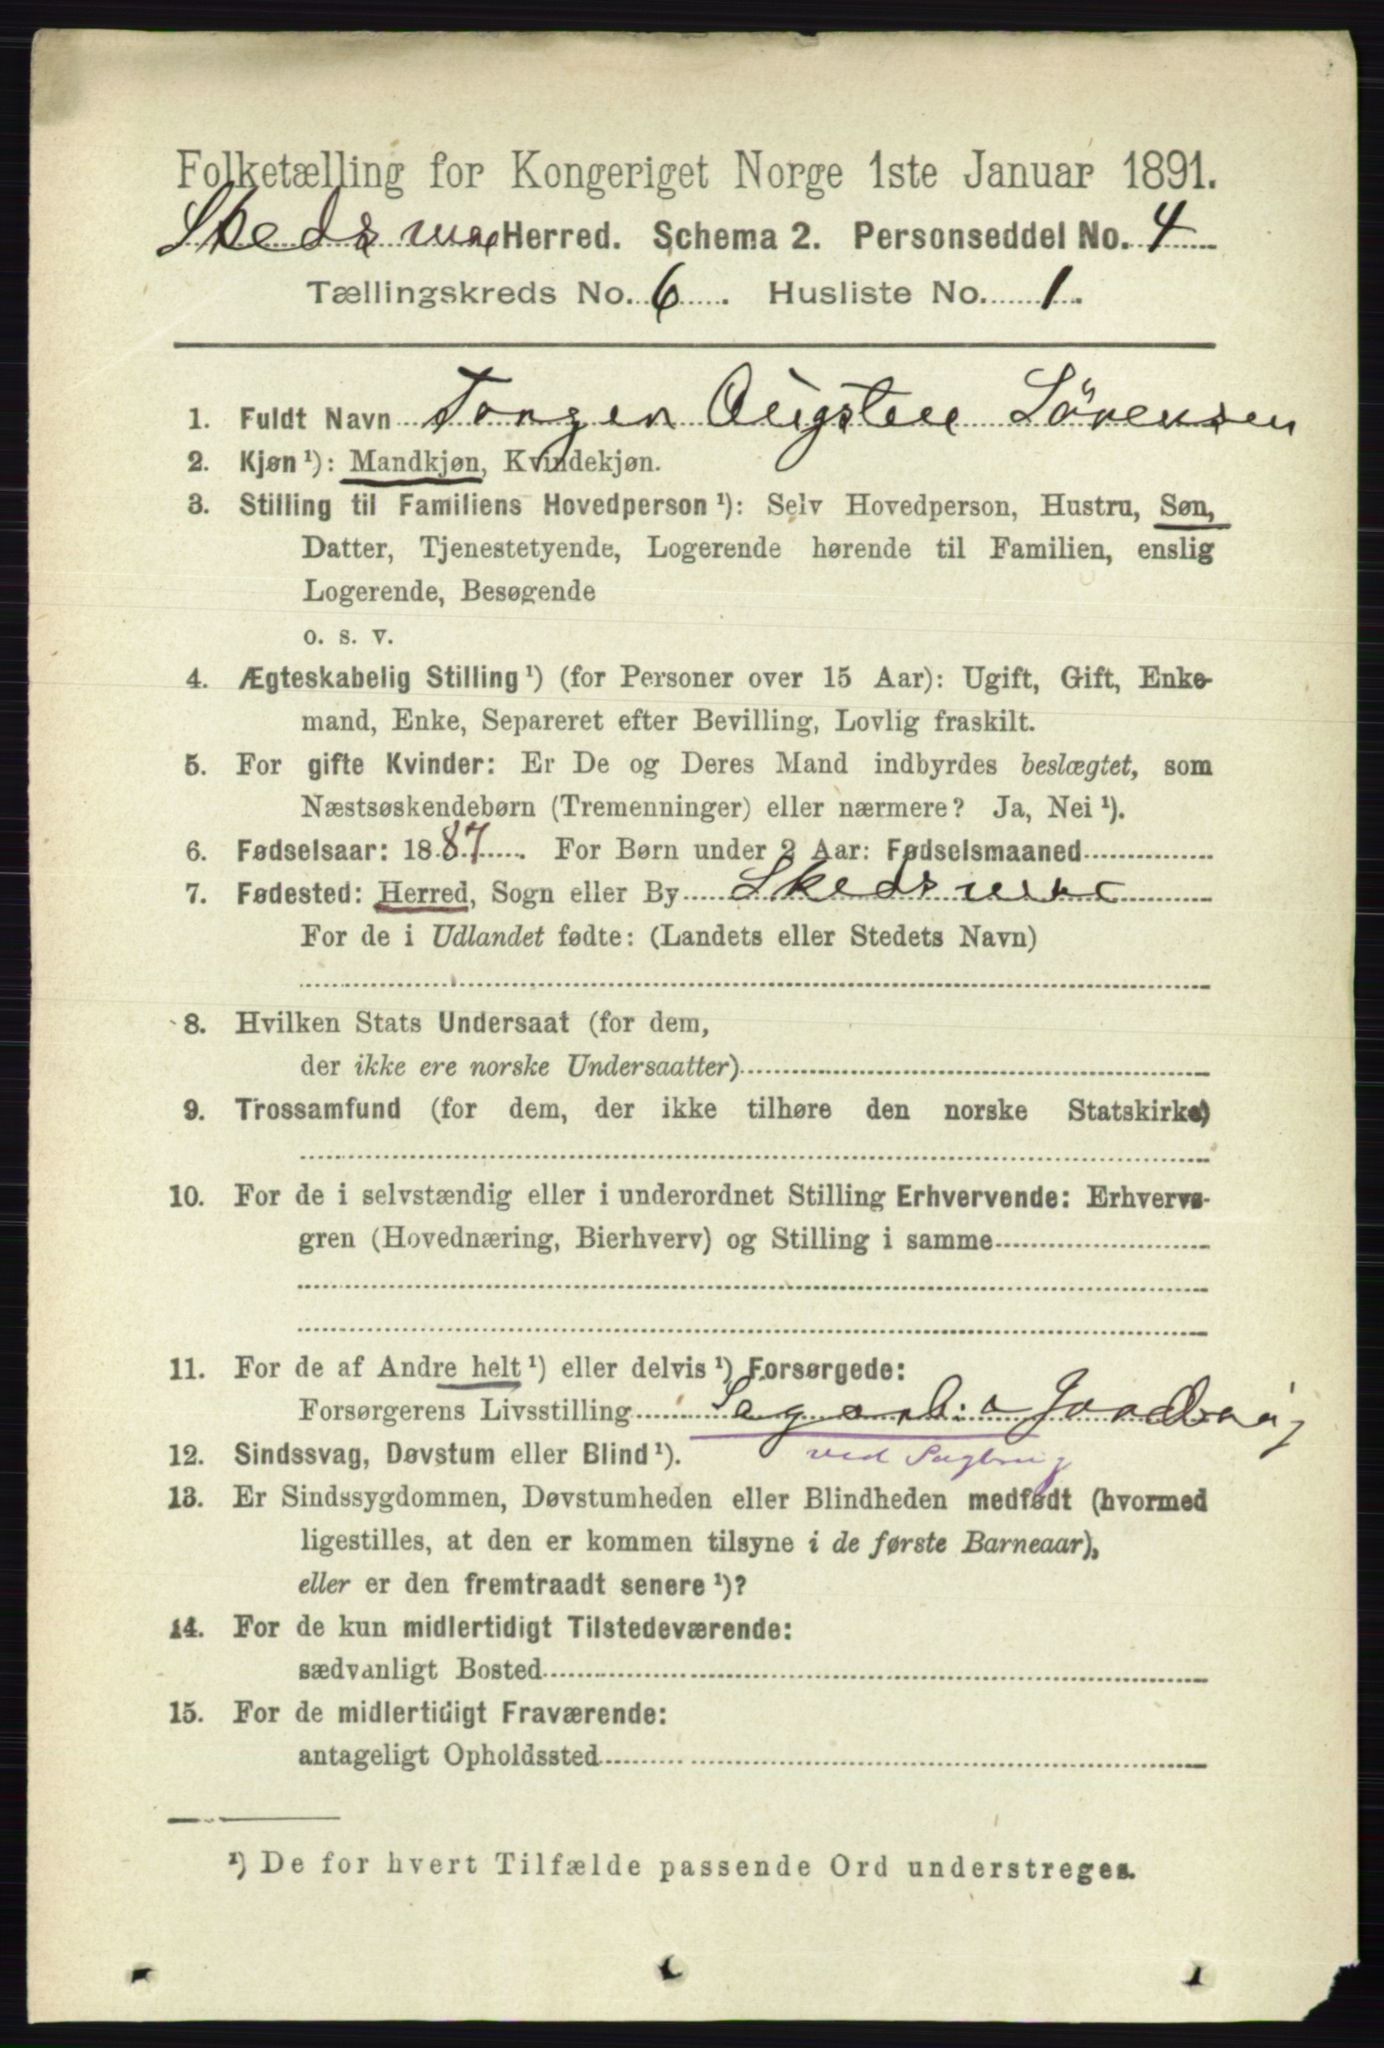 Folketælling for Kongeriget Norge 1ste Januar 1891.
Skedsmoe Herred. Schema 2. Personseddel No. 4
Tællingskreds No. 6. Husliste No. 1.
1. Fuldt Navn Jørgen Sörensen
2. Kjøn¹): Mandkjøn, Kvindekjøn.
3. Stilling til Familiens Hovedperson¹): Selv Hovedperson, Hustru, Søn,
Datter, Tjenestetyende, Logerende hørende til Familien, enslig
Logerende, Besøgende
o. s. v.
4. Ægteskabelig Stilling¹) (for Personer over 15 Aar): Ugift, Gift, Enke-
mand, Enke, Separeret efter Bevilling, Lovlig fraskilt.
5. For gifte Kvinder: Er De og Deres Mand indbyrdes beslægtet, som
Næstsøskendebørn (Tremenninger) eller nærmere? Ja, Nei¹).
6. Fødselsaar: 1887. For Børn under 2 Aar: Fødselsmaaned
7. Fødested: Herred, Sogn eller By Skedsmoe
For de i Udlandet fødte: (Landets eller Stedets Navn)
8. Hvilken Stats Undersaat (for dem,
der ikke ere norske Undersaatter)
9. Trossamfund (for dem, der ikke tilhøre den norske Statskirke)
10. For de i selvstændig eller i underordnet Stilling Erhvervende: Erhvervs-
gren (Hovednæring, Bierhverv) og Stilling i samme
11. For de af Andre helt¹) eller delvis¹) Forsørgede:
Forsørgerens Livsstilling Sagarb: Jordbrug
12. Sindssvag, Døvstum eller Blind¹).
ved Sagbrug
13. Er Sindssygdommen, Døvstumheden eller Blindheden medfødt (hvormed
ligestilles, at den er kommen tilsyne i de første Barneaar),
eller er den fremtraadt senere¹)?
14. For de kun midlertidigt Tilstedeværende:
sædvanligt Bosted
15. For de midlertidigt Fraværende:
antageligt Opholdssted
¹) De for hvert Tilfælde passende Ord understreges.